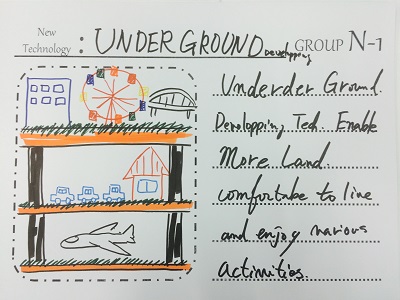 New
Technology : UNDERGROUND Developping GROUP N-1
Underder Ground.
Developping Tech Enable
More Land.
comfortabe to live
and enjoy various
activities.